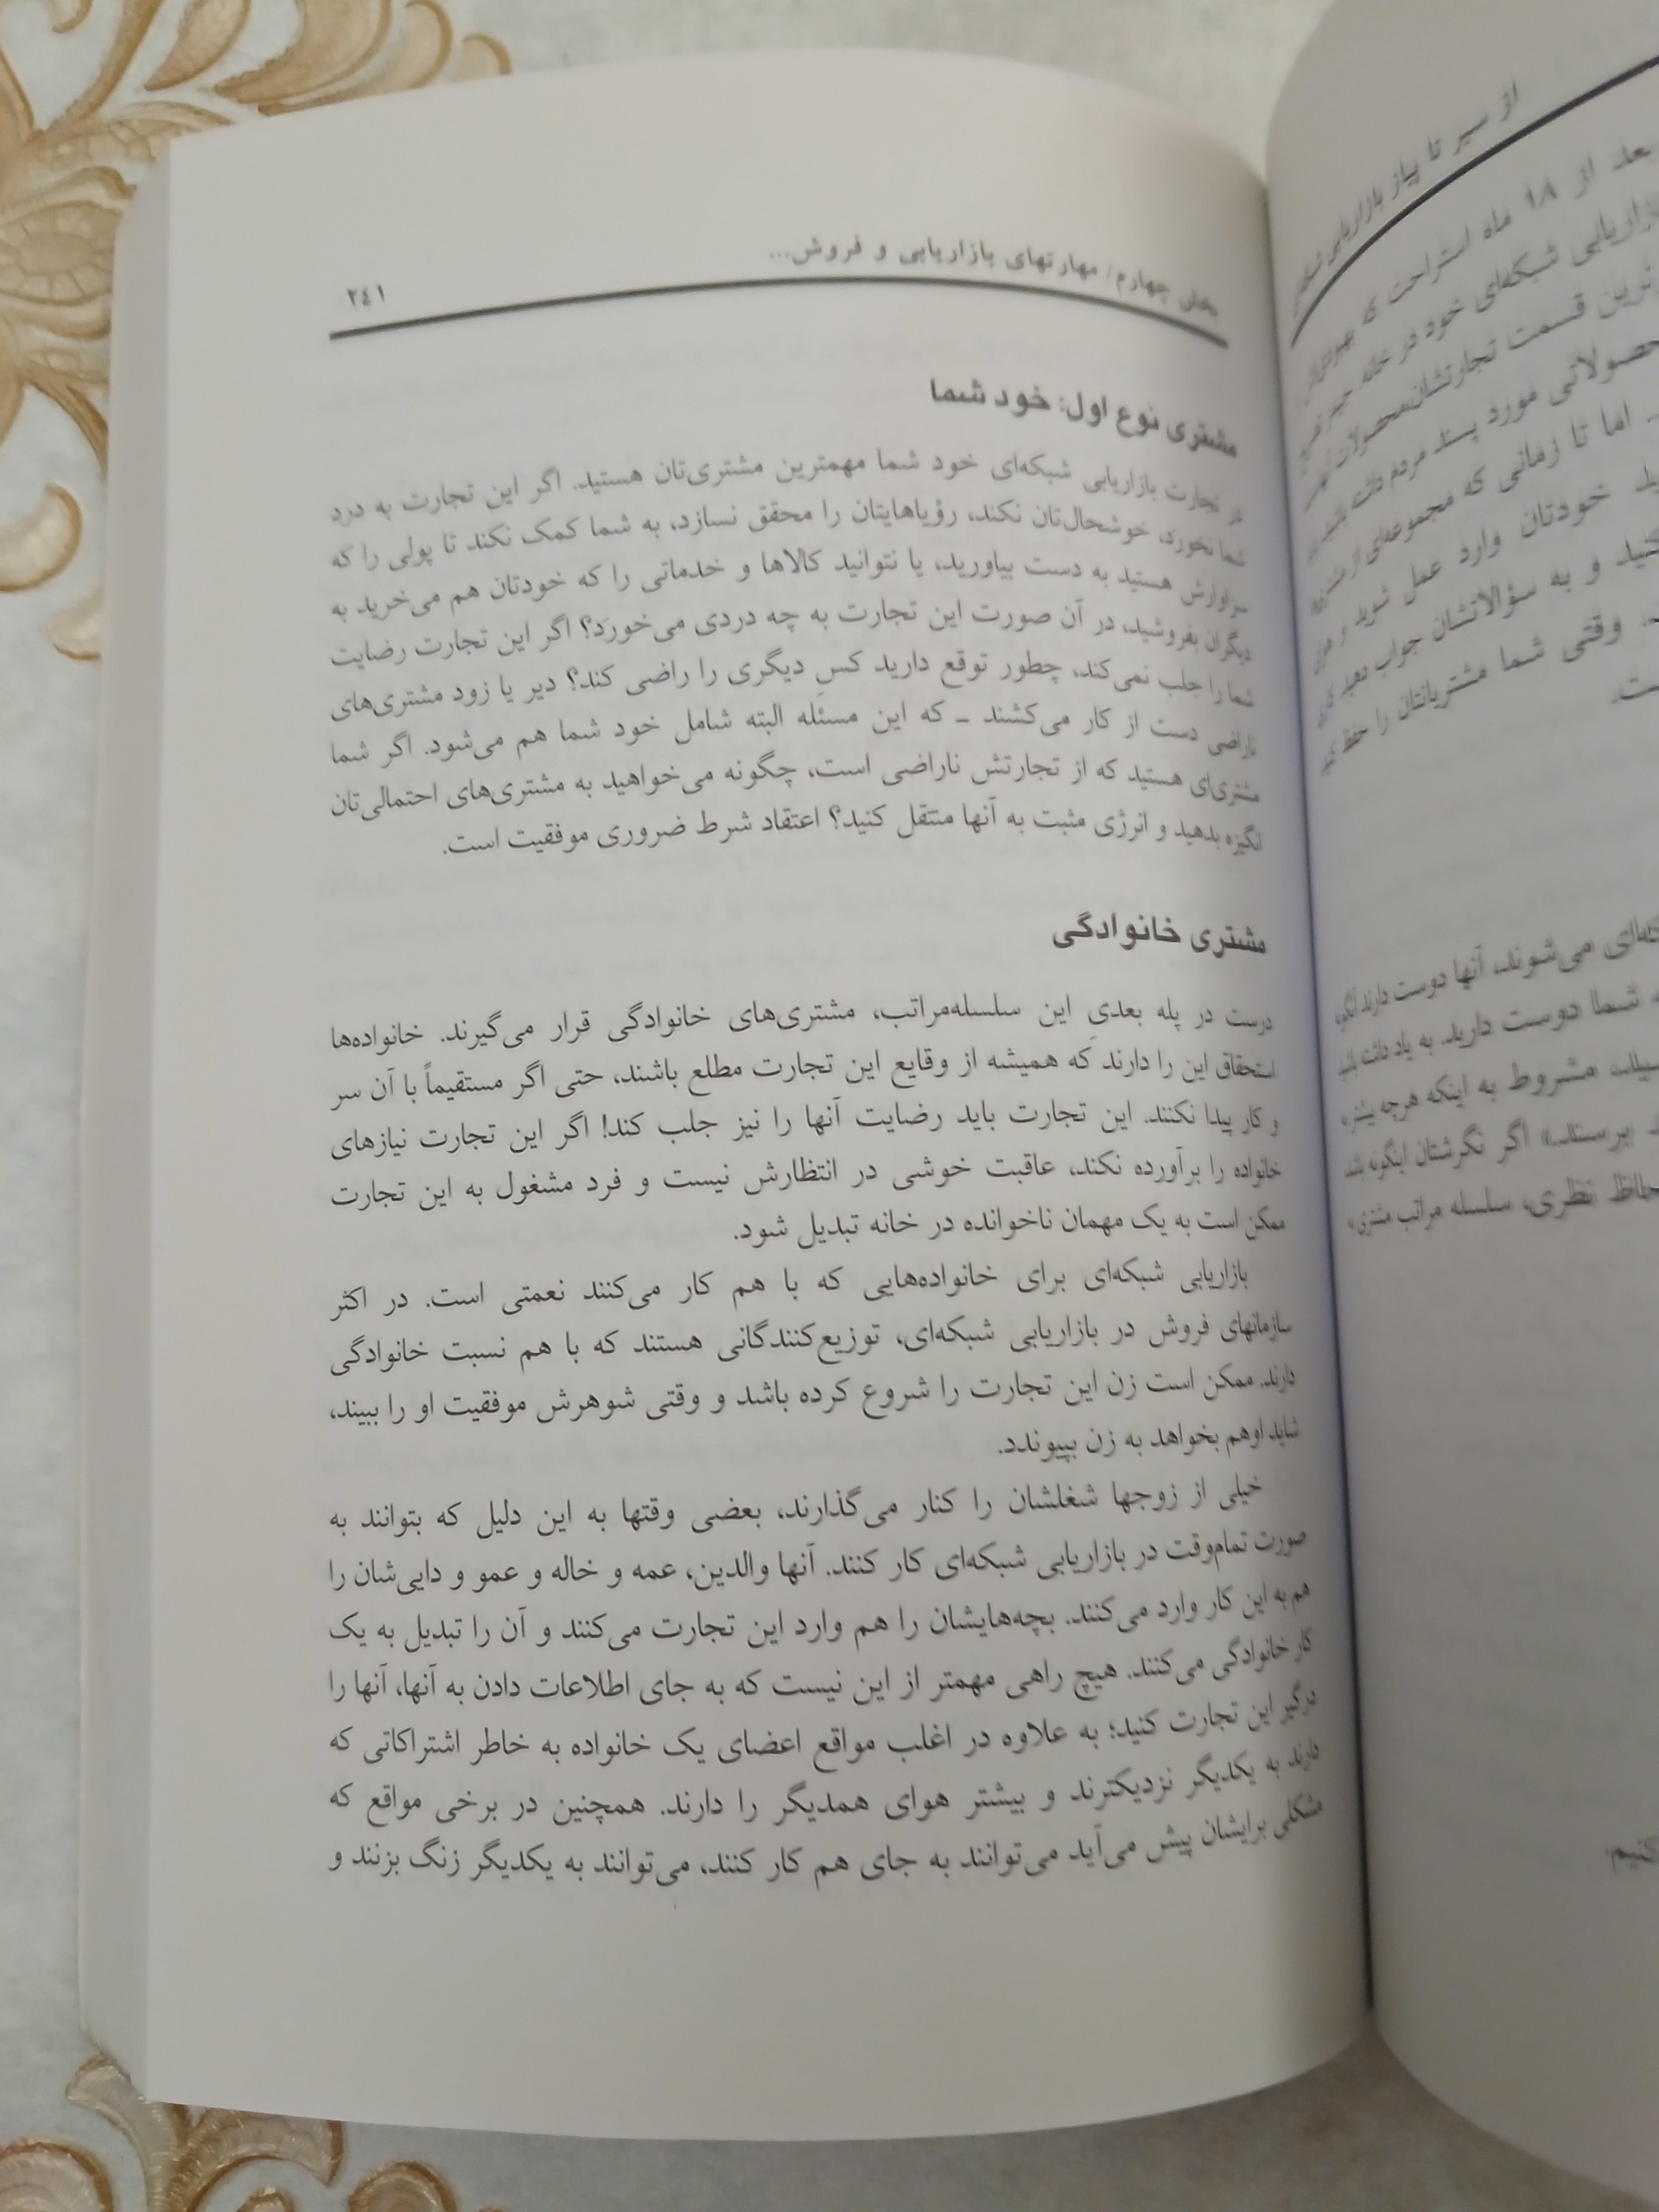 بخش چهارم/ مهارتهای بازاریابی و فروش... ۲۴۱
مشتری نوع اول: خود شما
در تجارت بازاریابی شبکه‌ای خود شما مهمترین مشتری‌تان هستید. اگر این تجارت به درد
شما نخورد، خوشحال‌تان نکند، رؤیاهایتان را محقق نسازد، به شما کمک نکند تا پولی را که
سزاوارش هستید به دست بیاورید، یا نتوانید کالاها و خدماتی را که خودتان هم می‌خرید به
دیگران بفروشید، در آن صورت این تجارت به چه دردی می‌خورَد؟ اگر این تجارت رضایت
شما را جلب نمی‌کند، چطور توقع دارید کسِ دیگری را راضی کند؟ دیر یا زود مشتری‌های
ناراضی دست از کار می‌کشند ــ که این مسئله البته شامل خود شما هم می‌شود. اگر شما
مشتری‌ای هستید که از تجارتش ناراضی است، چگونه می‌خواهید به مشتری‌های احتمالی‌تان
انگیزه بدهید و انرژی مثبت به آنها منتقل کنید؟ اعتقاد شرط ضروری موفقیت است.
مشتری خانوادگی
درست در پله بعدیِ این سلسله‌مراتب، مشتری‌های خانوادگی قرار می‌گیرند. خانواده‌ها
استحقاق این را دارند که همیشه از وقایع این تجارت مطلع باشند، حتی اگر مستقیماً با آن سر
و کار پیدا نکنند. این تجارت باید رضایت آنها را نیز جلب کند! اگر این تجارت نیازهای
خانواده را برآورده نکند، عاقبت خوشی در انتظارش نیست و فرد مشغول به این تجارت
ممکن است به یک مهمان ناخوانده در خانه تبدیل شود.
بازاریابی شبکه‌ای برای خانواده‌هایی که با هم کار می‌کنند نعمتی است. در اکثر
سازمانهای فروش در بازاریابی شبکه‌ای، توزیع‌کنندگانی هستند که با هم نسبت خانوادگی
دارند. ممکن است زن این تجارت را شروع کرده باشد و وقتی شوهرش موفقیت او را ببیند،
شاید او هم بخواهد به زن بپیوندد.
خیلی از زوجها شغلشان را کنار می‌گذارند، بعضی وقتها به این دلیل که بتوانند به
صورت تمام‌وقت در بازاریابی شبکه‌ای کار کنند. آنها والدین، عمه و خاله و عمو و دایی‌شان را
هم به این کار وارد می‌کنند. بچه‌هایشان را هم وارد این تجارت می‌کنند و آن را تبدیل به یک
کار خانوادگی می‌کنند. هیچ راهی مهمتر از این نیست که به جای اطلاعات دادن به آنها، آنها را
درگیر این تجارت کنید؛ به علاوه در اغلب مواقع اعضای یک خانواده به خاطر اشتراکاتی که
دارند به یکدیگر نزدیکترند و بیشتر هوای همدیگر را دارند. همچنین در برخی مواقع که
مشکلی برایشان پیش می‌آید می‌توانند به جای هم کار کنند، می‌توانند به یکدیگر زنگ بزنند و
از سیر تا پیاز بازاریابی
بعد از ۱۸ ماه استراحت که
بازاریابی شبکه‌ای خود در خانه
ترین قسمت تجارتشان محصولات
محصولاتی مورد پسند مردم داشته باشید
اما تا زمانی که مجموعه‌ای از
خودتان وارد عمل شوید و
کنید و به سؤالاتشان جواب دهید
وقتی شما مشتریانتان را حفظ
ست.
می‌شوند، آنها دوست دارند
شما دوست دارید. به یاد داشته باشید
مشروط به اینکه هرچه بیشتر
برسند.» اگر نگرشتان اینگونه باشد
لحاظ نظری، سلسله مراتب مشتری
کنیم.